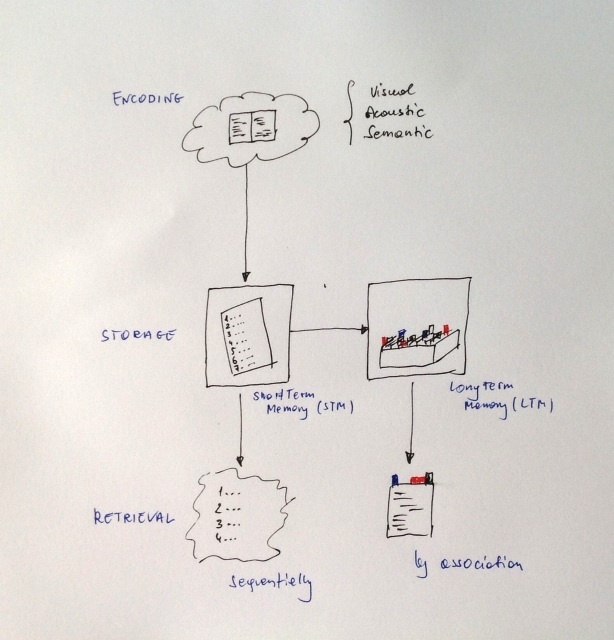 ENCODING
Visual
Acoustic
Semantic
STORAGE
1...
2...
3...
4...
5...
6...
7...
Short Term
Memory (STM)
Long Term
Memory (LTM)
RETRIEVAL
1...
2...
3...
4...
sequentielly
by association